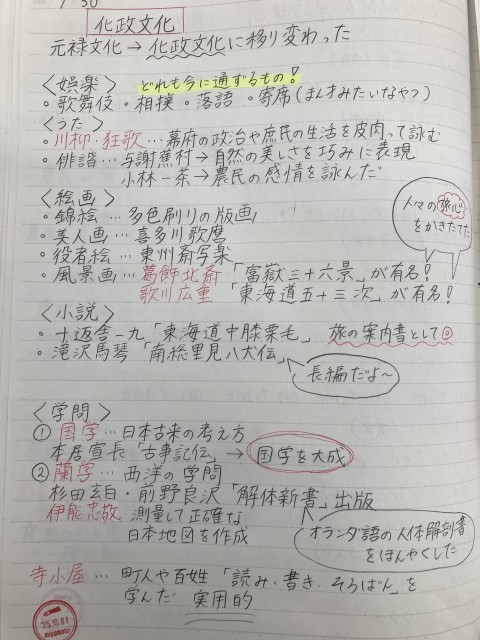 化政文化
元禄文化→化政文化に移り変わった
〈娯楽〉 どれも今に通ずるもの!
・歌舞伎 ・相撲 ・落語 ・寄席(まん才みたいなやつ)
〈うた〉
・川柳・狂歌…幕府の政治や庶民の生活を皮肉って詠む
・俳諧…与謝蕪村→自然の美しさを巧みに表現
小林一茶→農民の感情を詠んだ
〈絵画〉
・錦絵…多色刷りの版画
・美人画…喜多川歌麿
・役者絵…東州斎写楽
・風景画…葛飾北斎「富嶽三十六景」が有名!
歌川広重「東海道五十三次」が有名!
人々の旅心
をかきたてた
〈小説〉
・十返舎一九「東海道中膝栗毛」 旅の案内書として◎
・滝沢馬琴「南総里見八犬伝」
長編だよ〜
〈学問〉
① 国学…日本古来の考え方
本居宣長「古事記伝」→国学を大成
② 蘭学…西洋の学問
杉田玄白・前野良沢「解体新書」出版
オランダ語の人体解剖書
をほんやくした
伊能忠敬 測量して正確な
日本地図を作成
寺小屋…町人や百姓「読み・書き・そろばん」を
学んだ 実用的